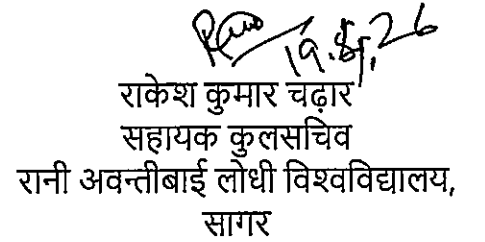 19.8.26
राकेश कुमार चढ़ार
सहायक कुलसचिव
रानी अवन्तीबाई लोधी विश्वविद्यालय,
सागर